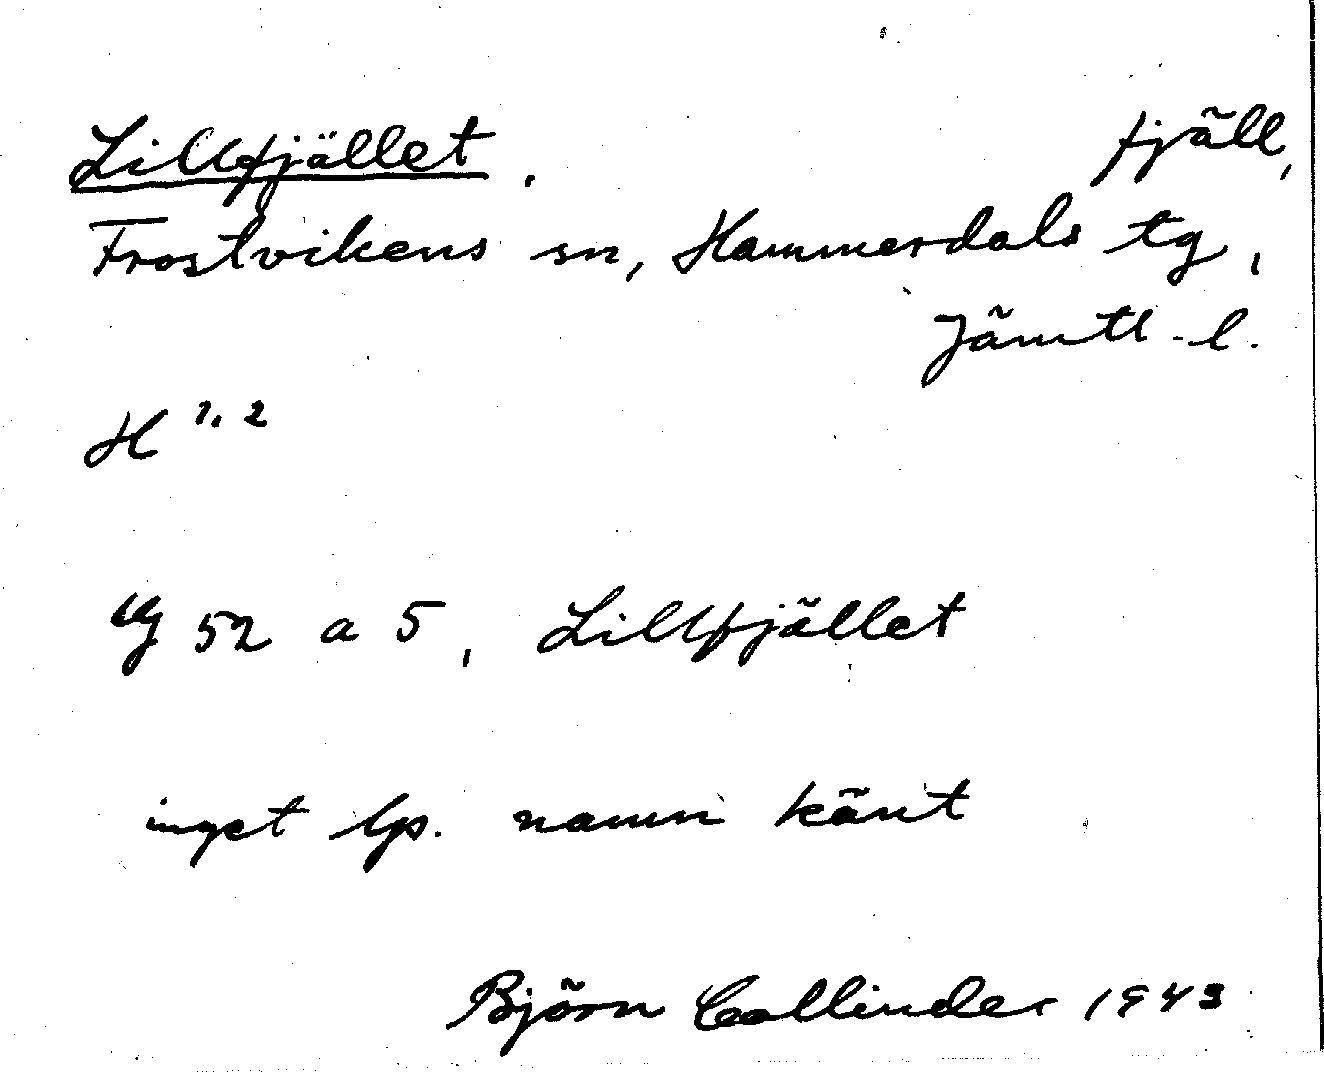 Lillfjället. fjäll,
Frostvikens sn, Hammerdals tg,
Jämtl. l.
H 1, 2
52 a 5, Lillfjället
inget lp. namn känt
Björn Collinder 1943